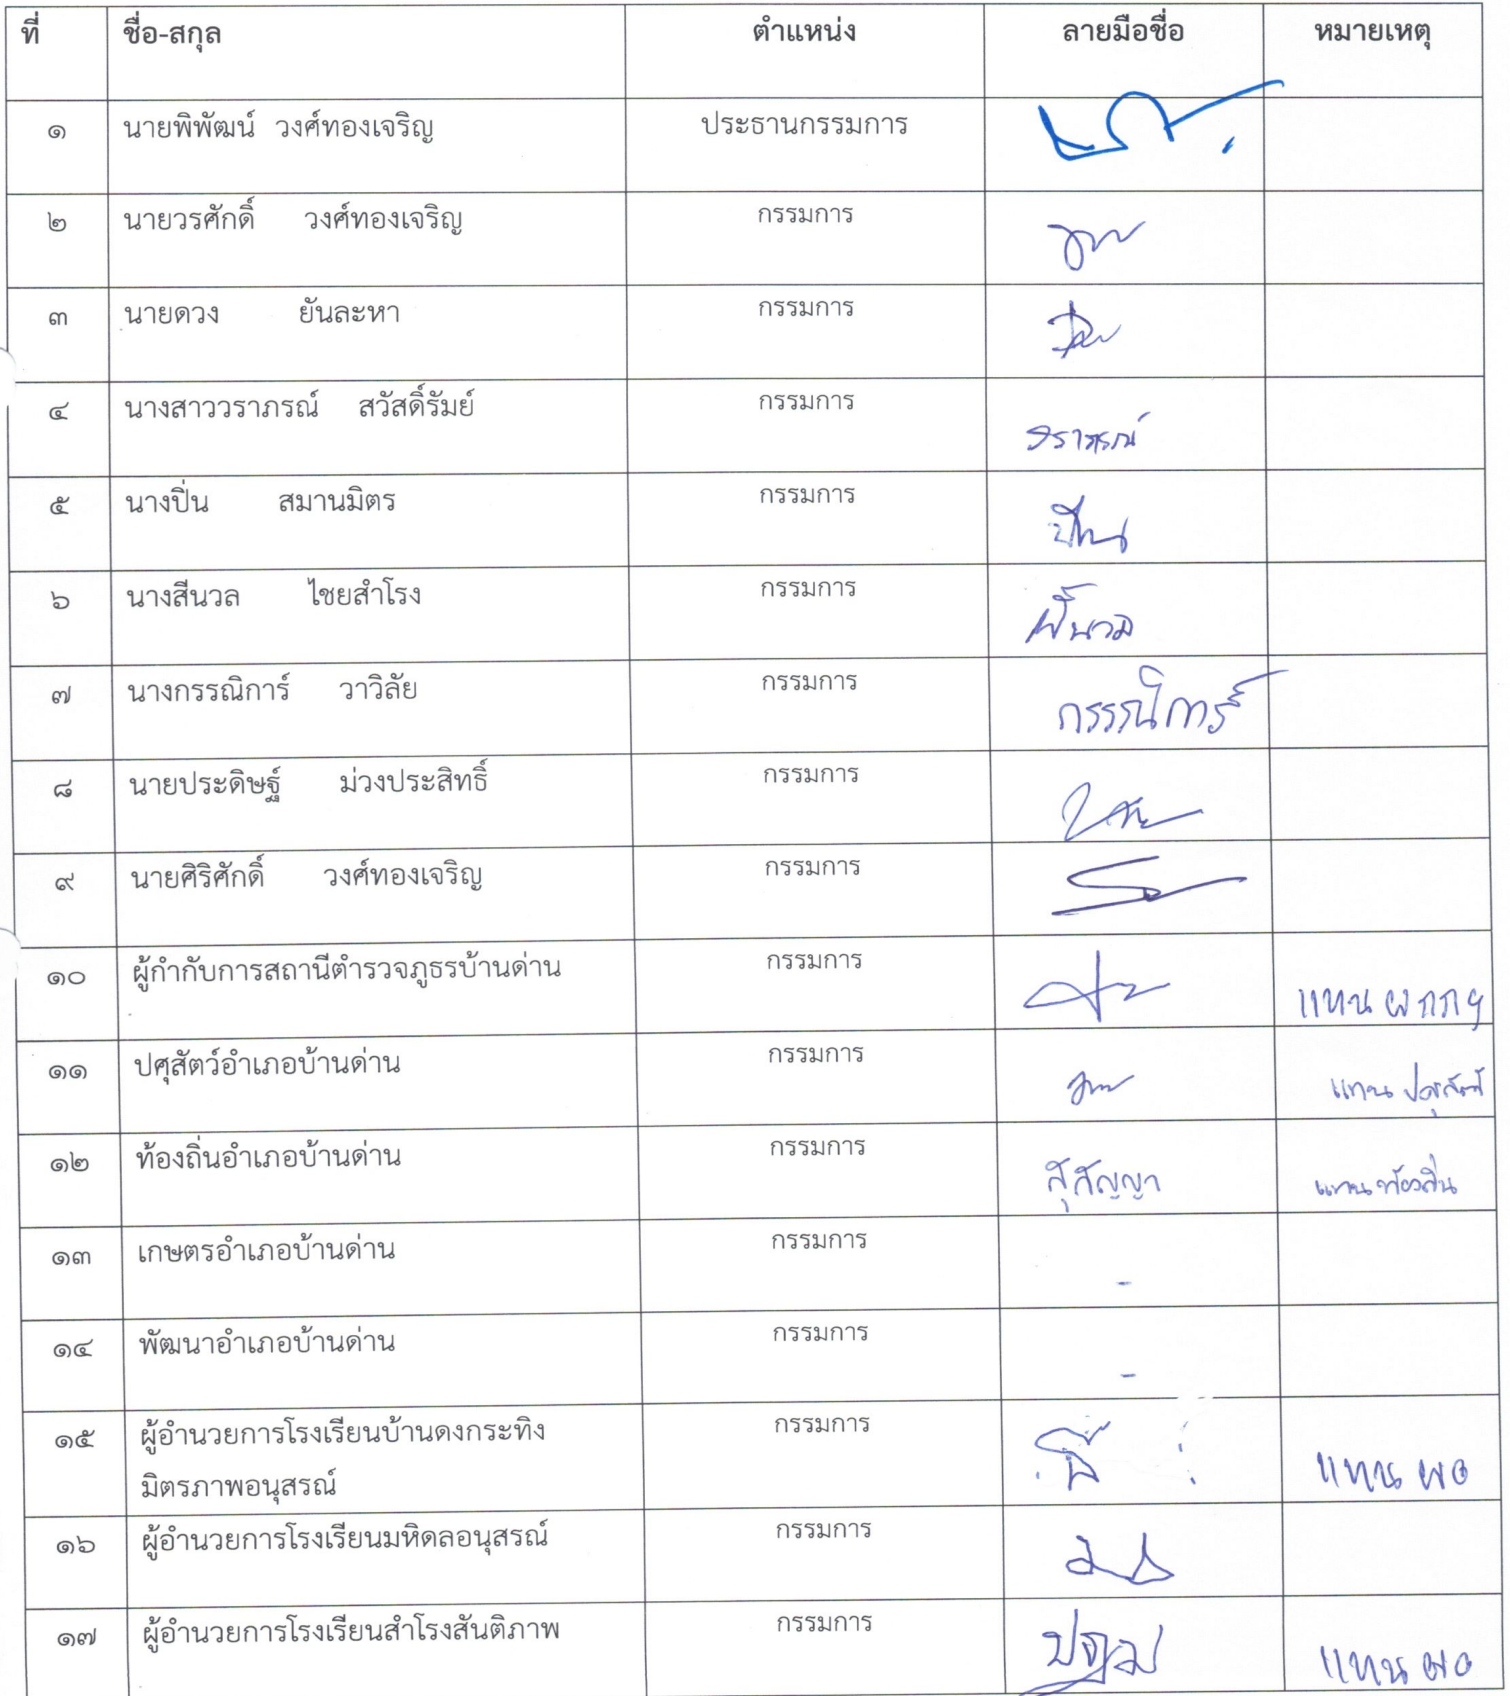 ที่ ชื่อ-สกุล ตำแหน่ง ลายมือชื่อ หมายเหตุ
๑ นายพิพัฒน์ วงศ์ทองเจริญ ประธานกรรมการ
๒ นายวรศักดิ์ วงศ์ทองเจริญ กรรมการ
๓ นายดวง ยันละหา กรรมการ
๔ นางสาววราภรณ์ สวัสดิ์รัมย์ กรรมการ วราภรณ์
๕ นางปิ่น สมานมิตร กรรมการ ปิ่น
๖ นางสีนวล ไชยสำโรง กรรมการ
๗ นางกรรณิการ์ วาวิลัย กรรมการ กรรณิการ์
๘ นายประดิษฐ์ ม่วงประสิทธิ์ กรรมการ
๙ นายศิริศักดิ์ วงศ์ทองเจริญ กรรมการ
๑๐ ผู้กำกับการสถานีตำรวจภูธรบ้านด่าน กรรมการ แทน ผกกฯ
๑๑ ปศุสัตว์อำเภอบ้านด่าน กรรมการ แทน ปศุสัตว์
๑๒ ท้องถิ่นอำเภอบ้านด่าน กรรมการ สุสัญญา แทนท้องถิ่น
๑๓ เกษตรอำเภอบ้านด่าน กรรมการ -
๑๔ พัฒนาอำเภอบ้านด่าน กรรมการ -
๑๕ ผู้อำนวยการโรงเรียนบ้านดงกระทิง กรรมการ แทน ผอ
มิตรภาพอนุสรณ์
๑๖ ผู้อำนวยการโรงเรียนมหิดลอนุสรณ์ กรรมการ
๑๗ ผู้อำนวยการโรงเรียนสำโรงสันติภาพ กรรมการ แทน ผอ